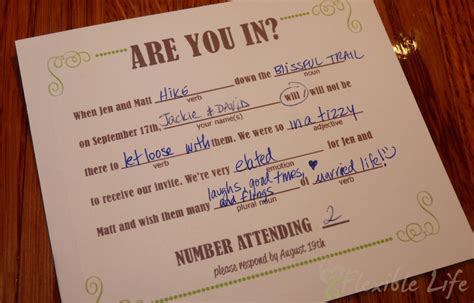 ARE YOU IN?
When Jen and Matt HIKE down the BLISSFUL TRAIL
verb noun
on September 17th, Jackie & DAVID will / will not be
your name(s)
there to let loose with them. We were so in a tizzy
verb adjective
to receive our invite. We're very elated for Jen and
emotion
Matt and wish them many laughs, good times, and flings of married life!
plural noun verb
NUMBER ATTENDING 2
please respond by August 19th
Flexible Life